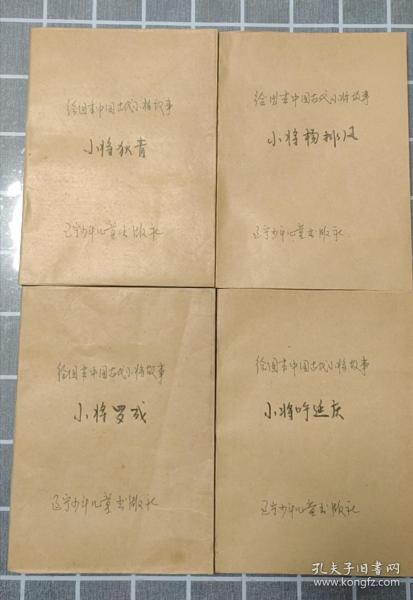 绘图本中国古代小将故事
小将狄青
辽宁少年儿童出版社
绘图本中国古代小将故事
小将杨排风
辽宁少年儿童出版社
绘图本中国古代小将故事
小将罗成
辽宁少年儿童出版社
绘图本中国古代小将故事
小将呼延庆
辽宁少年儿童出版社
孔夫子旧书网